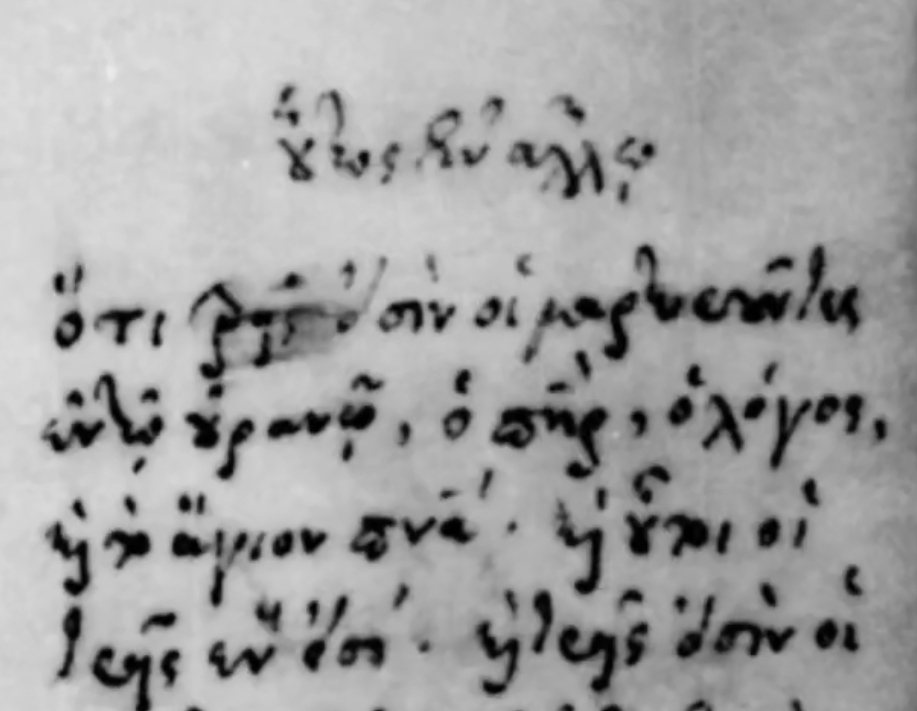 οὕτως ἐν ἄλλῳ
ὅτι τρεῖς εἰσὶν οἱ μαρτυροῦντες
ἐν τῷ οὐρανῷ, ὁ πηρ, ὁ λόγος,
καὶ τὸ ἅγιον πνα· καὶ οὗτοι οἱ
τρεῖς ἕν εἰσι· καὶ τρεῖς εἰσὶν οἱ